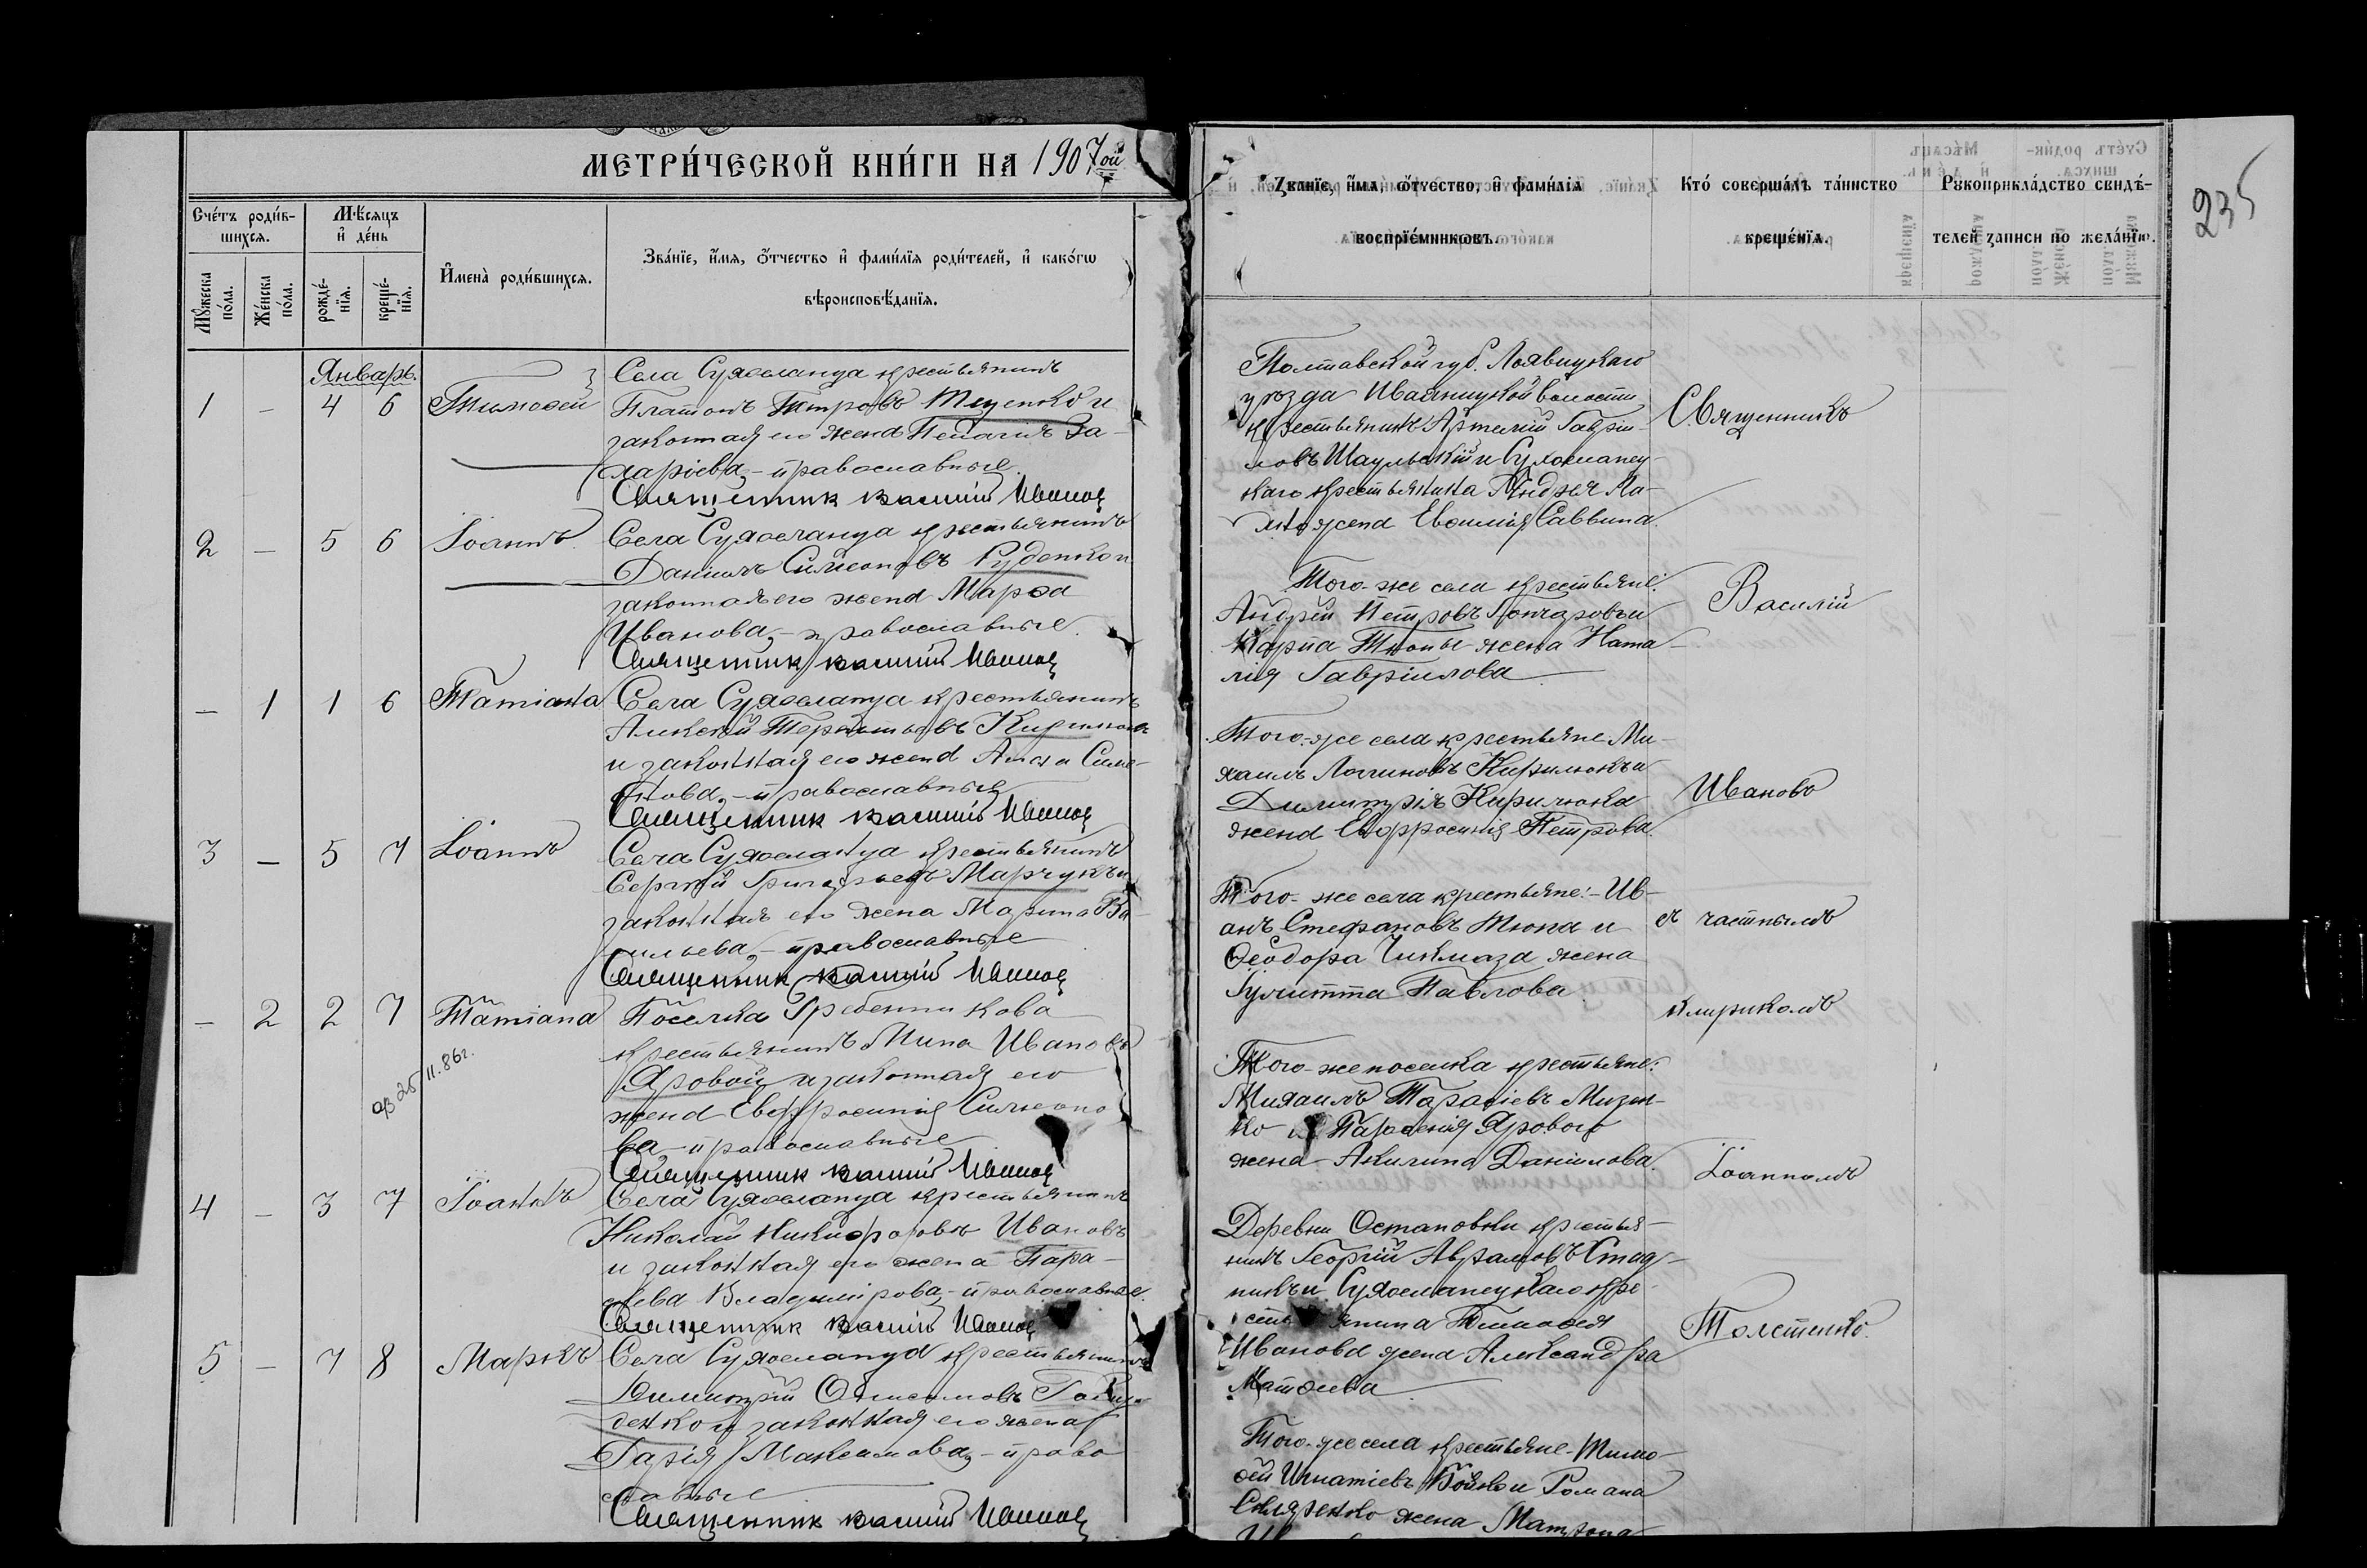 МЕТРИ́ЧЕСКОЙ КНИ́ГИ НА 1907ой
Сче́тъ роди́вшихся.
Мѣсяцъ и де́нь
Имена̀ роди́вшихся.
Зва́нїе, и́мя, ѻ́тчество и фами́лїя роди́телей, и како́гѡ
вѣроисповѣ́данїя.
Мꙋжеска по́ла.
Же́нска по́ла.
рожде́нїя.
креще́нїя.
Январь.
1 - 4 6 Тимофей
Села Сухоеланца крестьянинъ
Платонъ Петровъ Тещенко и
законная его жена Пелагія За-
харіева, - православные.
Священник Василий Иванов
2 - 5 6 Іоаннъ
Села Сухоеланца крестьянинъ
Даніилъ Симеоновъ Руденко и
законная его жена Марѳа
Иванова, - православные.
Священник Василий Иванов
- 1 1 6 Татіана
Села Сухоеланца крестьянинъ
Алексѣй Терентьевъ
и законная его жена Анна Симе-
онова, - православные
Священник Василий Иванов
3 - 5 7 Іоаннъ
Села Сухоеланца крестьянинъ
Сергѣй Григорьевъ Марчукъ и
законная его жена Марина Ва-
сильева, - православные
Священник Василий Иванов
- 2 2 7 Татіана
Поселка Гребенникова
крестьянинъ Мина Ивановъ
Яровой и законная его
жена Евфросинія Симеоно-
ва - православные
Священник Василий Иванов
25/11.86г.
4 - 3 7 Іоаннъ
Села Сухоеланца крестьянинъ
Николай Никифоровъ Ивановъ
и законная его жена Пара-
скева Владимірова, - православные.
Священник Василий Иванов
5 - 7 8 Маркъ
Села Сухоеланца крестьянинъ
Димитрій Онисимовъ
денко и законная его жена
Дарія Максимова, - право
славные
Священник Василий Иванов
235
Зва́нїе, и́мя, ѻ́тчество, и фами́лїя
воспрїе́мниковъ.
Кто́ соверша́лъ та́инство
креще́нїя.
Рꙋкоприкла́дство свидѣ́-
телей записи по жела́нїю.
Полтавской губ. Лохвицкаго
уѣзда Ивахницкой волости
крестьянинъ Артемій Гаврі-
ловъ Шаульскій и Сухоеланец-
каго крестьянина Андрея
жена Евѳимія Саввина.
Того-же села крестьяне:
Андрей Петровъ Гончаровъ и
Карпа Тюпы жена Ната-
лія Гавріилова
Того-же села крестьяне Ми-
хаилъ Логиновъ Кирилюкъ и
Димитрія Кирилюка
жена Евфросинія Петрова.
Того-же села крестьяне: - Ив-
анъ Стефановъ Тюпа и
Ѳеодора Чикмаза жена
Іулитта Павлова.
Того-же поселка крестьяне:
Михаилъ Тарасіевъ Мизен-
ко и Парѳенія Ярового
жена Акилина Даніилова.
Деревни Остановки крестья-
нинъ Георгій Аврамовъ Стад-
никъ и Сухоеланецкаго кре-
стьянина Тимофея
Иванова жена Александра
Матѳеева
Того-же села крестьяне - Тимо-
ѳей Игнатіевъ Бойко и Романа
Скляренко жена Матрона
Священникъ
Василій
Ивановъ
съ частнымъ
клирикомъ
Іоанномъ
Толстенко.